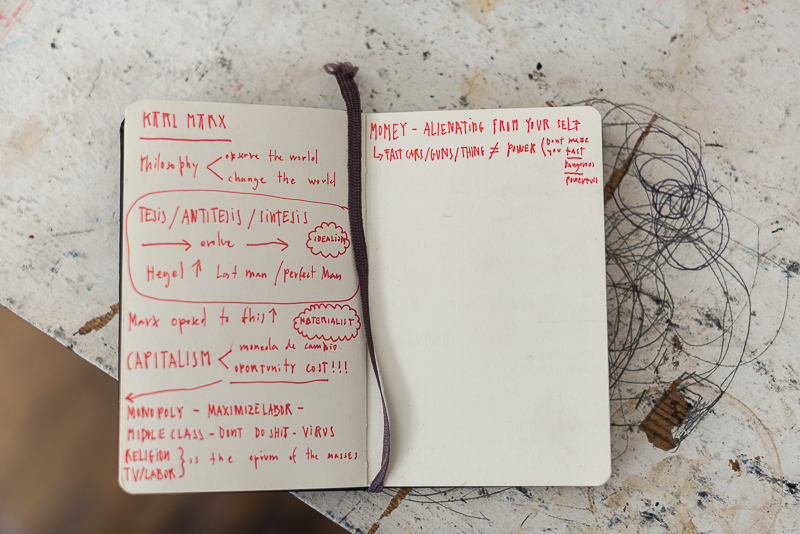 KARL MARX
Philosophy < observe the world
change the world
TESIS/ANTITESIS/SINTESIS
→ evolve → IDEALISM
Hegel ↑ Last man / perfect Man
Marx oposed to this ↑ MATERIALIST
CAPITALISM < moneda de cambio
oportunity cost!!!
MONOPOLY - MAXIMIZE LABOR -
MIDDLE CLASS - DONT DO SHIT - VIRUS
RELIGION } is the opium of the masses
TV/LABOR
MONEY - ALIENATING FROM YOUR SELF
↳ FAST CARS/GUNS/THING ≠ POWER (Dont make
you fast
Dangerous
powerfull